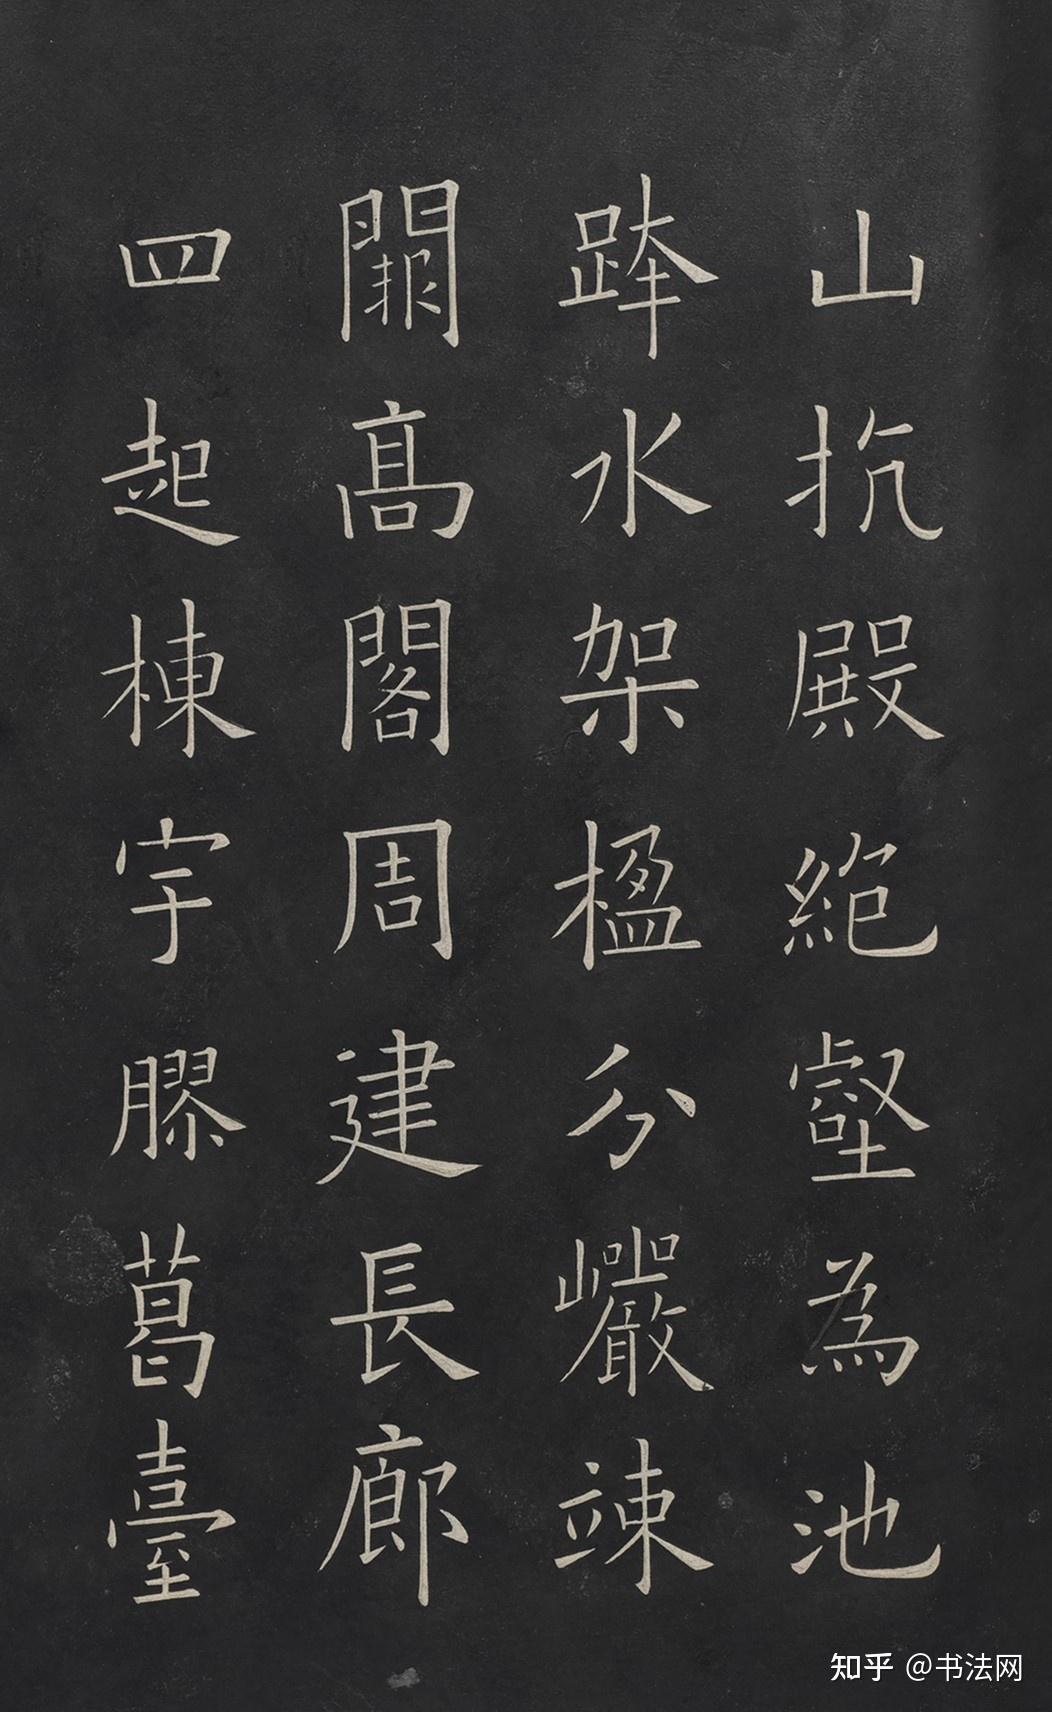 山抗殿絶壑為池
跨水架楹分巗竦
闕髙閣周建長廊
四起棟宇膠葛臺
知乎 @书法网